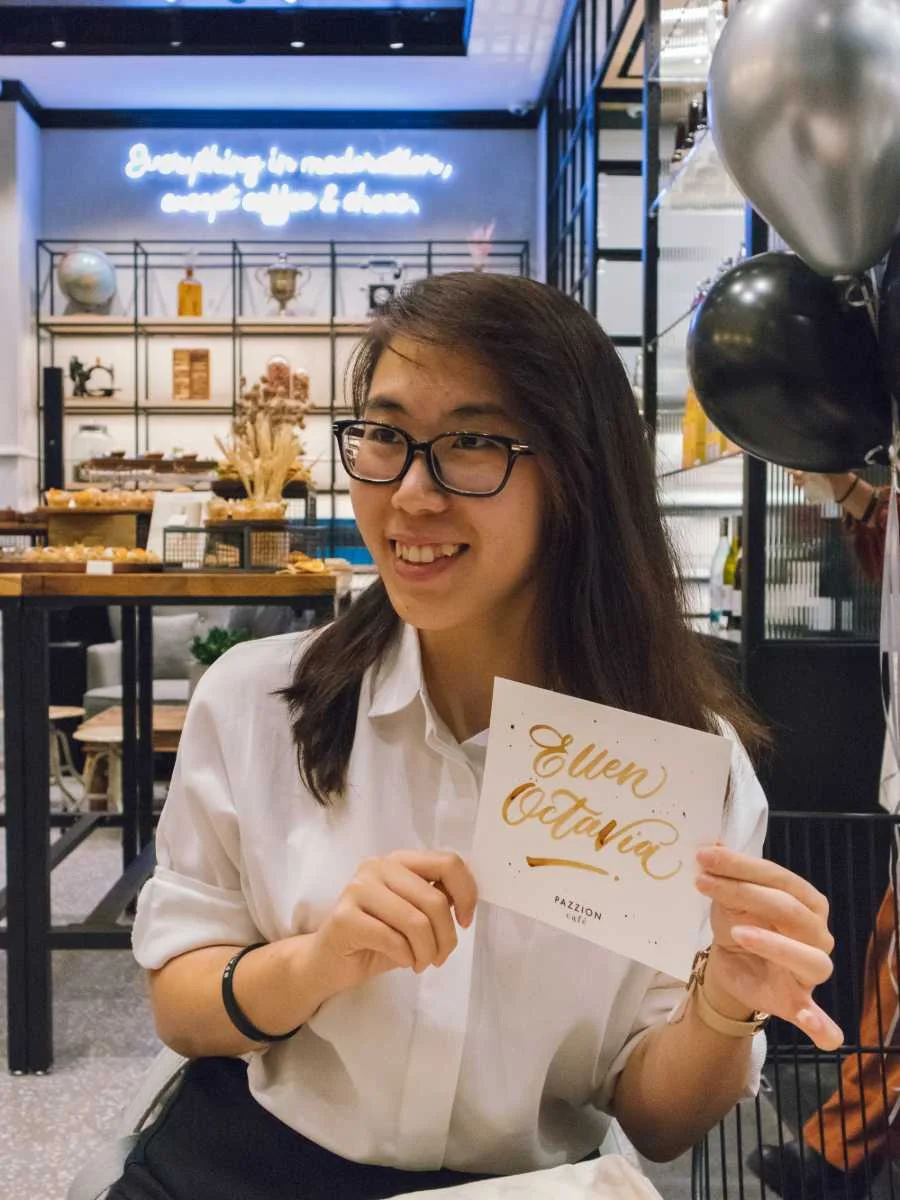 Everything in moderation,
except coffee & shoes.
Ellen
Octavia
PAZZION
café